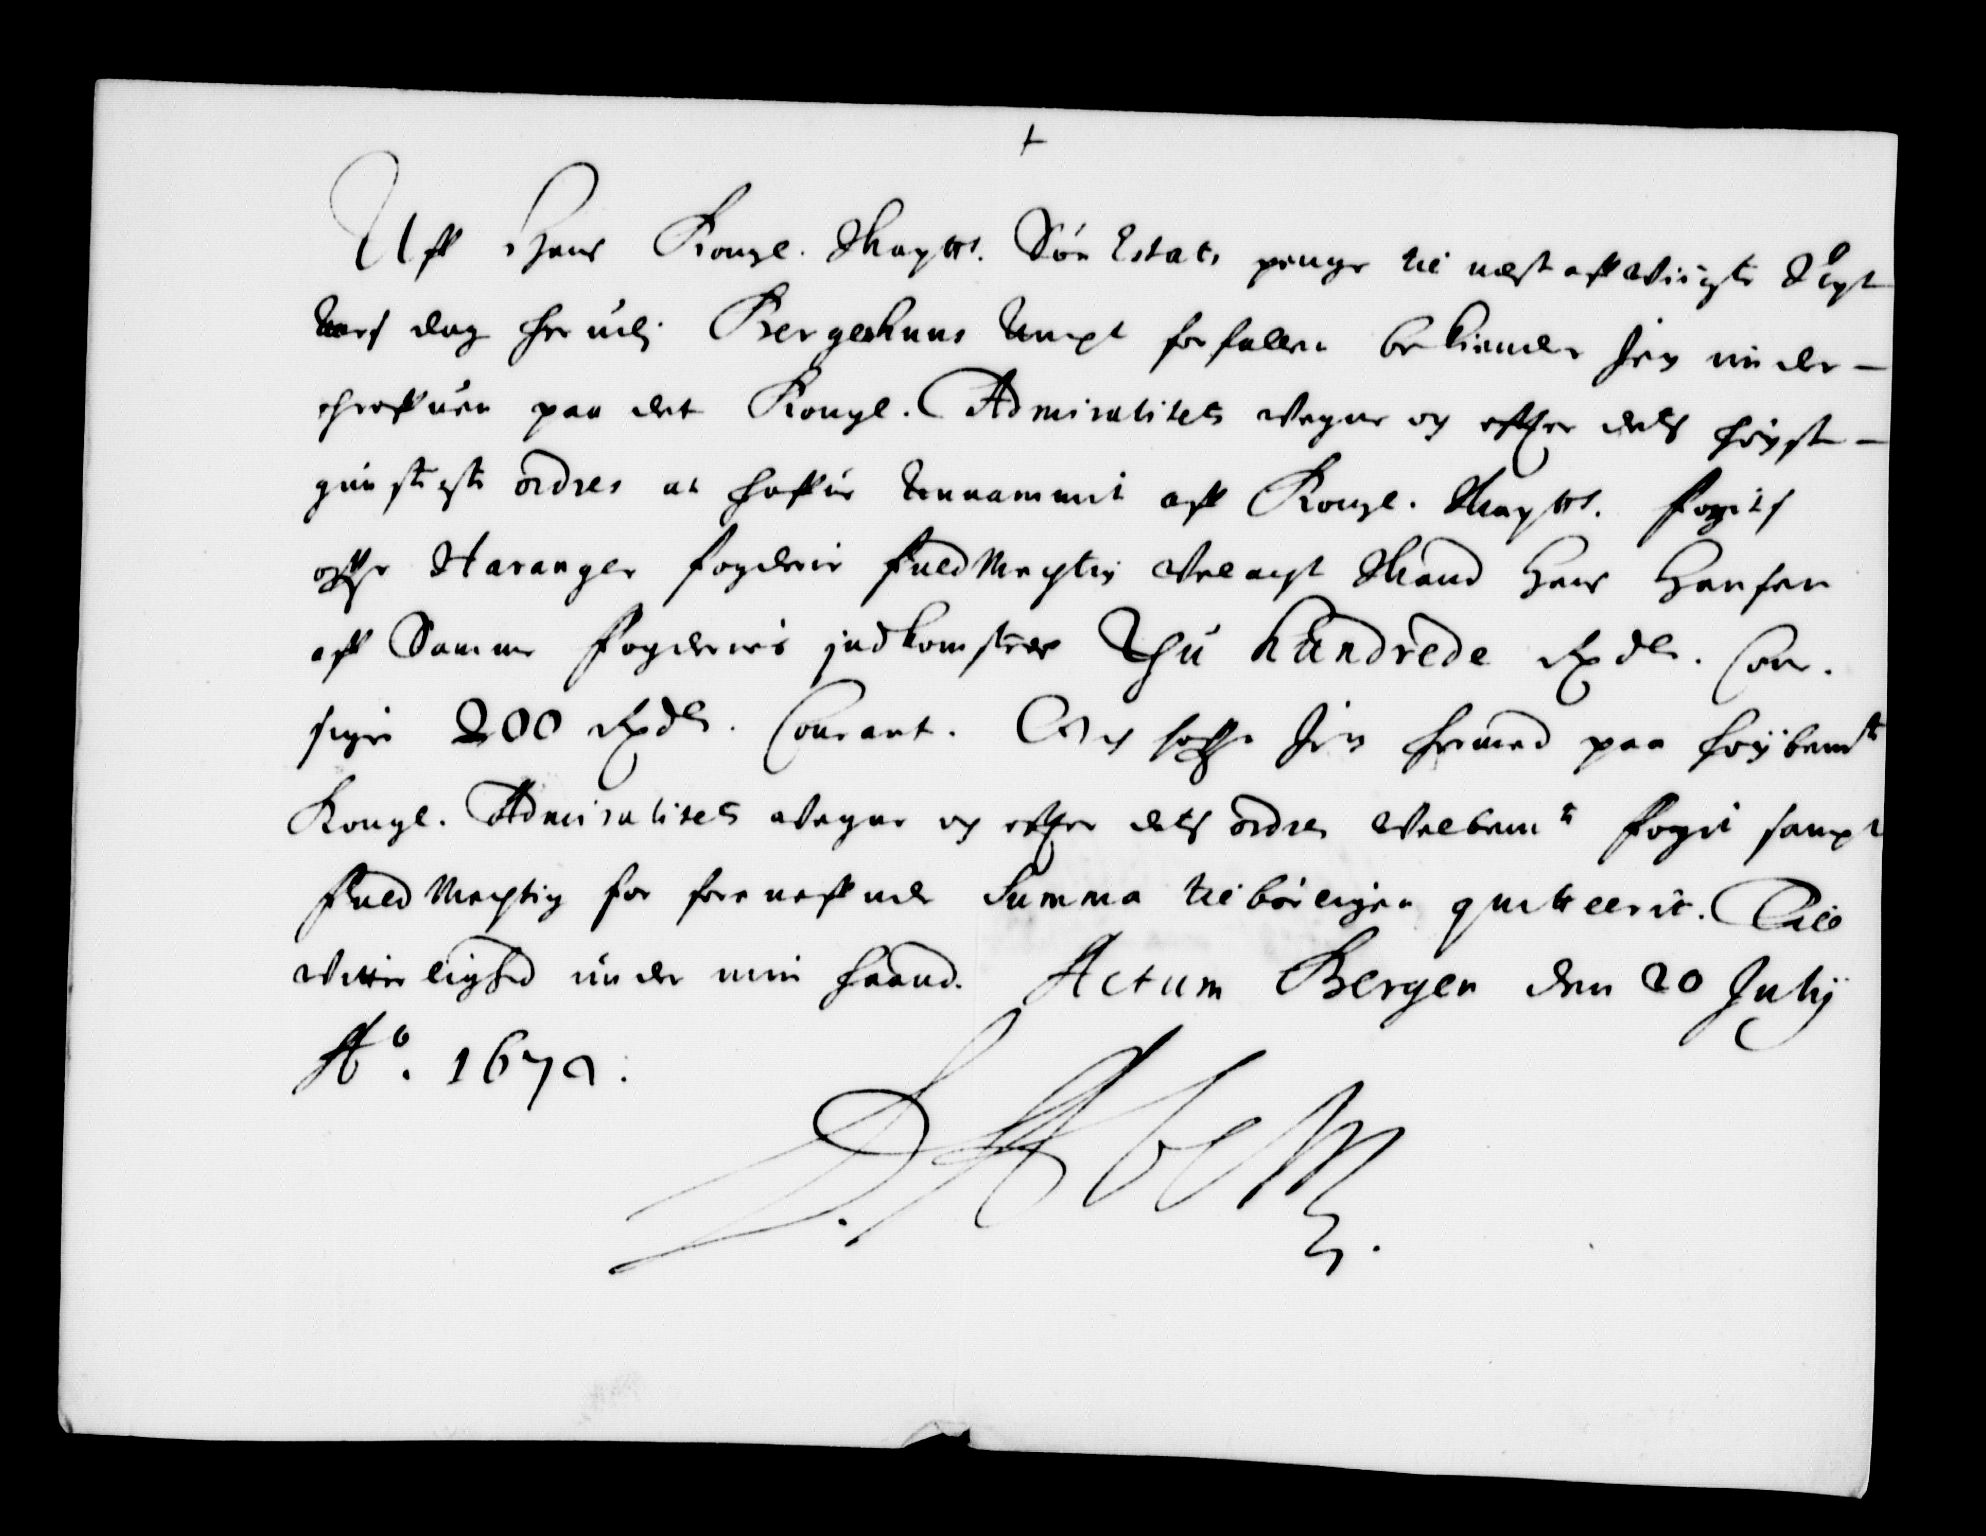 +
Aff Hans Kongl. Mayts. Söe Estats penge til nest affvigte Kyst
Mess dag her udj Bergenhuus Ampt forfallen bekiender Jeg under-
schreffuen paa det Kongl. Admiralitets vegne og effter dets höyst-
gunstigste ordres at haffue Annammit aff Kongl. Mayts. fogits
offuer Haranger fogderie fuldmegtig velagt Mand Hans Hansen
aff Samme fogderies jndkomster Thu hundrede Rixdlr. Cour.
siger 200 Rixdlr. Courant. Og haffuer Jeg hermed paa höybemte
Kongl. Admiralitets vegne og effter dets ordre velbemte fogit sampt
fuldmegtig for foreneffnde Summa tilbörligen quitterit. Till
vitterlighed under min haand. Actum Bergen den 20 Julij
Ao. 1672.